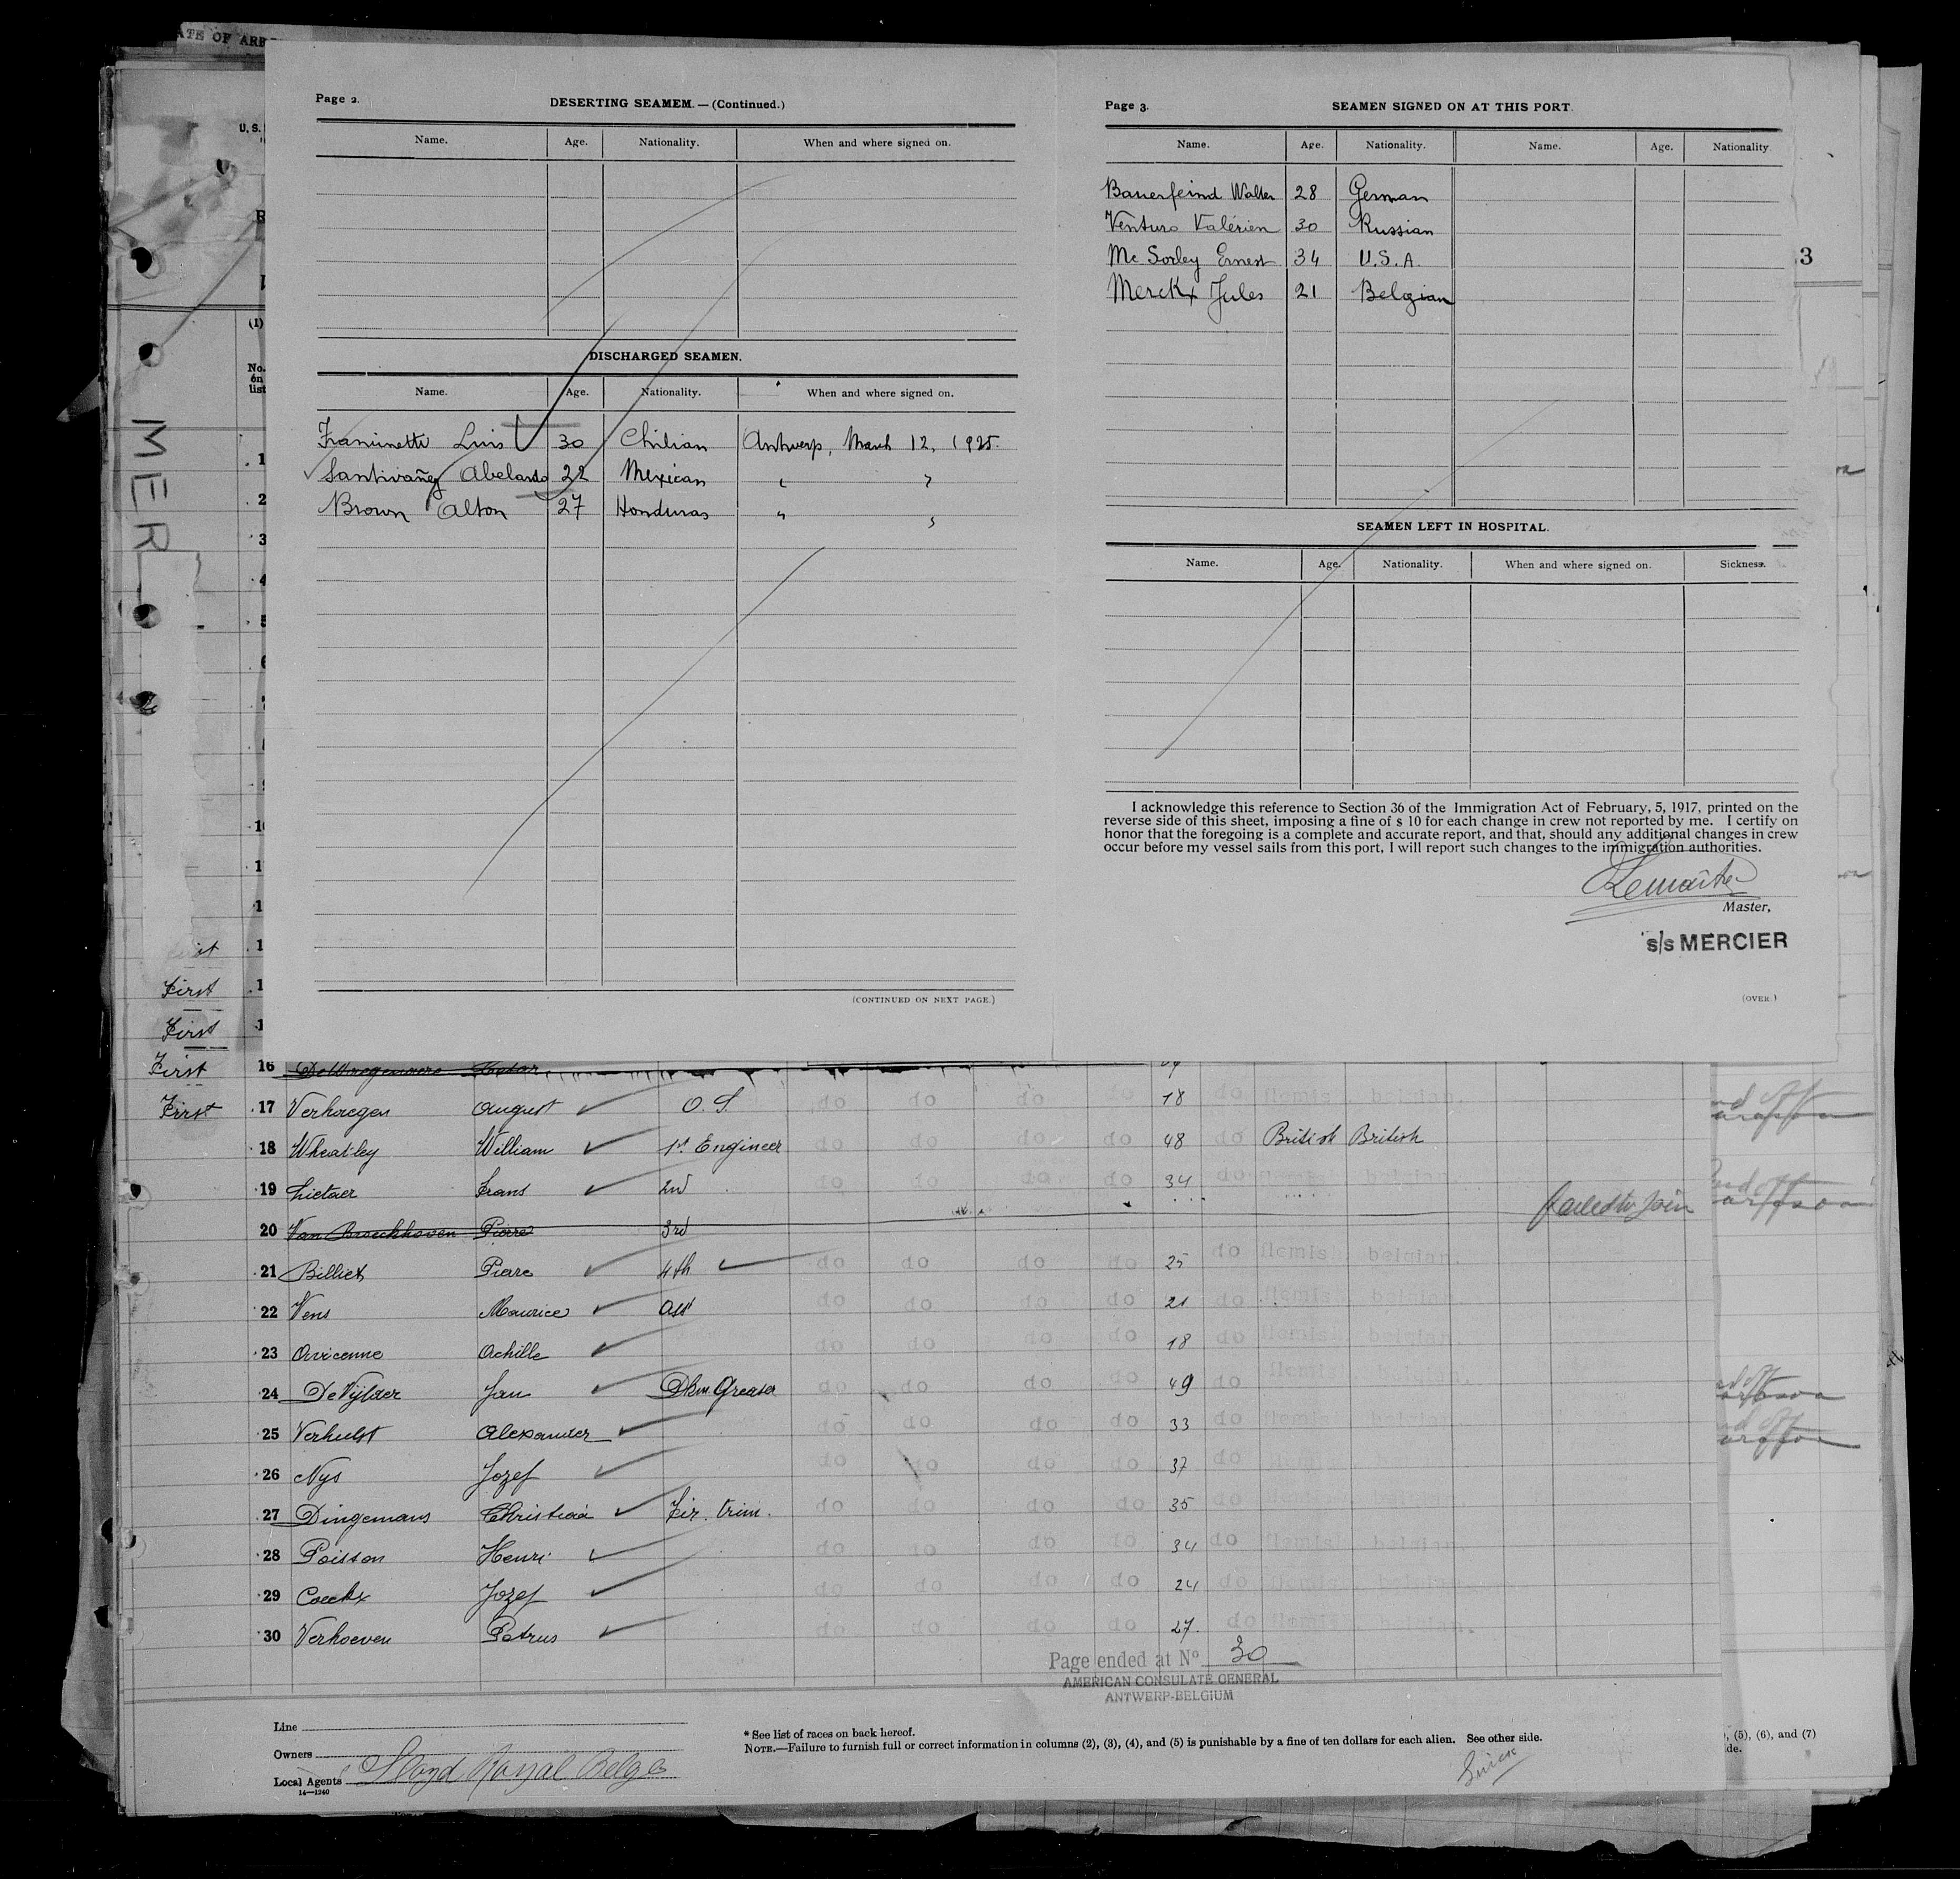 ATE OF ARR
U. S.
MER
3
Page 2.
DESERTING SEAMEM. — (Continued.)
Name. Age. Nationality. When and where signed on.
DISCHARGED SEAMEN.
Name. Age. Nationality. When and where signed on.
Franinetti Luis 30 Chilian Antwerp, March 12, 1925.
Santivañez Abelardo 22 Mexican " "
Brown Alton 27 Honduras " "
(CONTINUED ON NEXT PAGE.)
Page 3.
SEAMEN SIGNED ON AT THIS PORT
Name. Age. Nationality. Name. Age. Nationality
Bauerfeind Walter 28 German
Venturo Valérien 30 Russian
Mc Sorley Ernest 34 U.S.A.
Merckx Jules 21 Belgian
SEAMEN LEFT IN HOSPITAL.
Name. Age. Nationality. When and where signed on. Sickness.
I acknowledge this reference to Section 36 of the Immigration Act of February, 5, 1917, printed on the
reverse side of this sheet, imposing a fine of $ 10 for each change in crew not reported by me. I certify on
honor that the foregoing is a complete and accurate report, and that, should any additional changes in crew
occur before my vessel sails from this port, I will report such changes to the immigration authorities.
Lemaitre
Master,
s/s MERCIER
(OVER.)
(1)
No.
on
list
1
2
3
4
5
6
First
First
First 16
First 17 Verhaegen August O. S. do do do do 18 do flemish belgian.
18 Wheatley William 1st Engineer do do do do 48 do British British
19 Lietaer Frans 2nd do do do do 34 do flemish belgian
20 Van Broeckhoven Pierre 3rd failed to join
21 Billiet Pierre 4th do do do do 25 do flemish belgian.
22 Vens Maurice Asst do do do do 21 do flemish belgian.
23 Avicenne Achille do do do do 18 do flemish belgian.
24 De Vijlder Jan Dkm. Greaser do do do do 49 do flemish
25 Verhulst Alexander do do do do 33 do flemish belgian
26 Nys Jozef do do do do 37 do
27 Dingemans Christiaa Fir. trim. do do do do 35 do
28 Poisson Henri do do do do 34 do flemish belgian
29 Coeckx Jozef do do do do 24 do flemish belgian
30 Verhoeven Petrus do do do do 27. do flemish belgian.
Page ended at No 30
AMERICAN CONSULATE GENERAL
ANTWERP-BELGIUM
Line
Owners
Local Agents Lloyd Royal Belge
14—1240
* See list of races on back hereof.
NOTE.—Failure to furnish full or correct information in columns (2), (3), (4), and (5) is punishable by a fine of ten dollars for each alien. See other side.
, (5), (6), and (7)
ide.